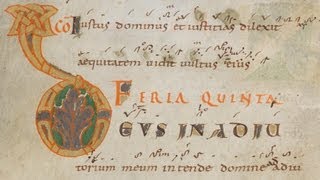 co Iustus dominus et iustitias dilexit
aequitatem uidit uultus eius
FERIA QUINTA
DEUS IN ADIU
torium meum intende domine ad adiu